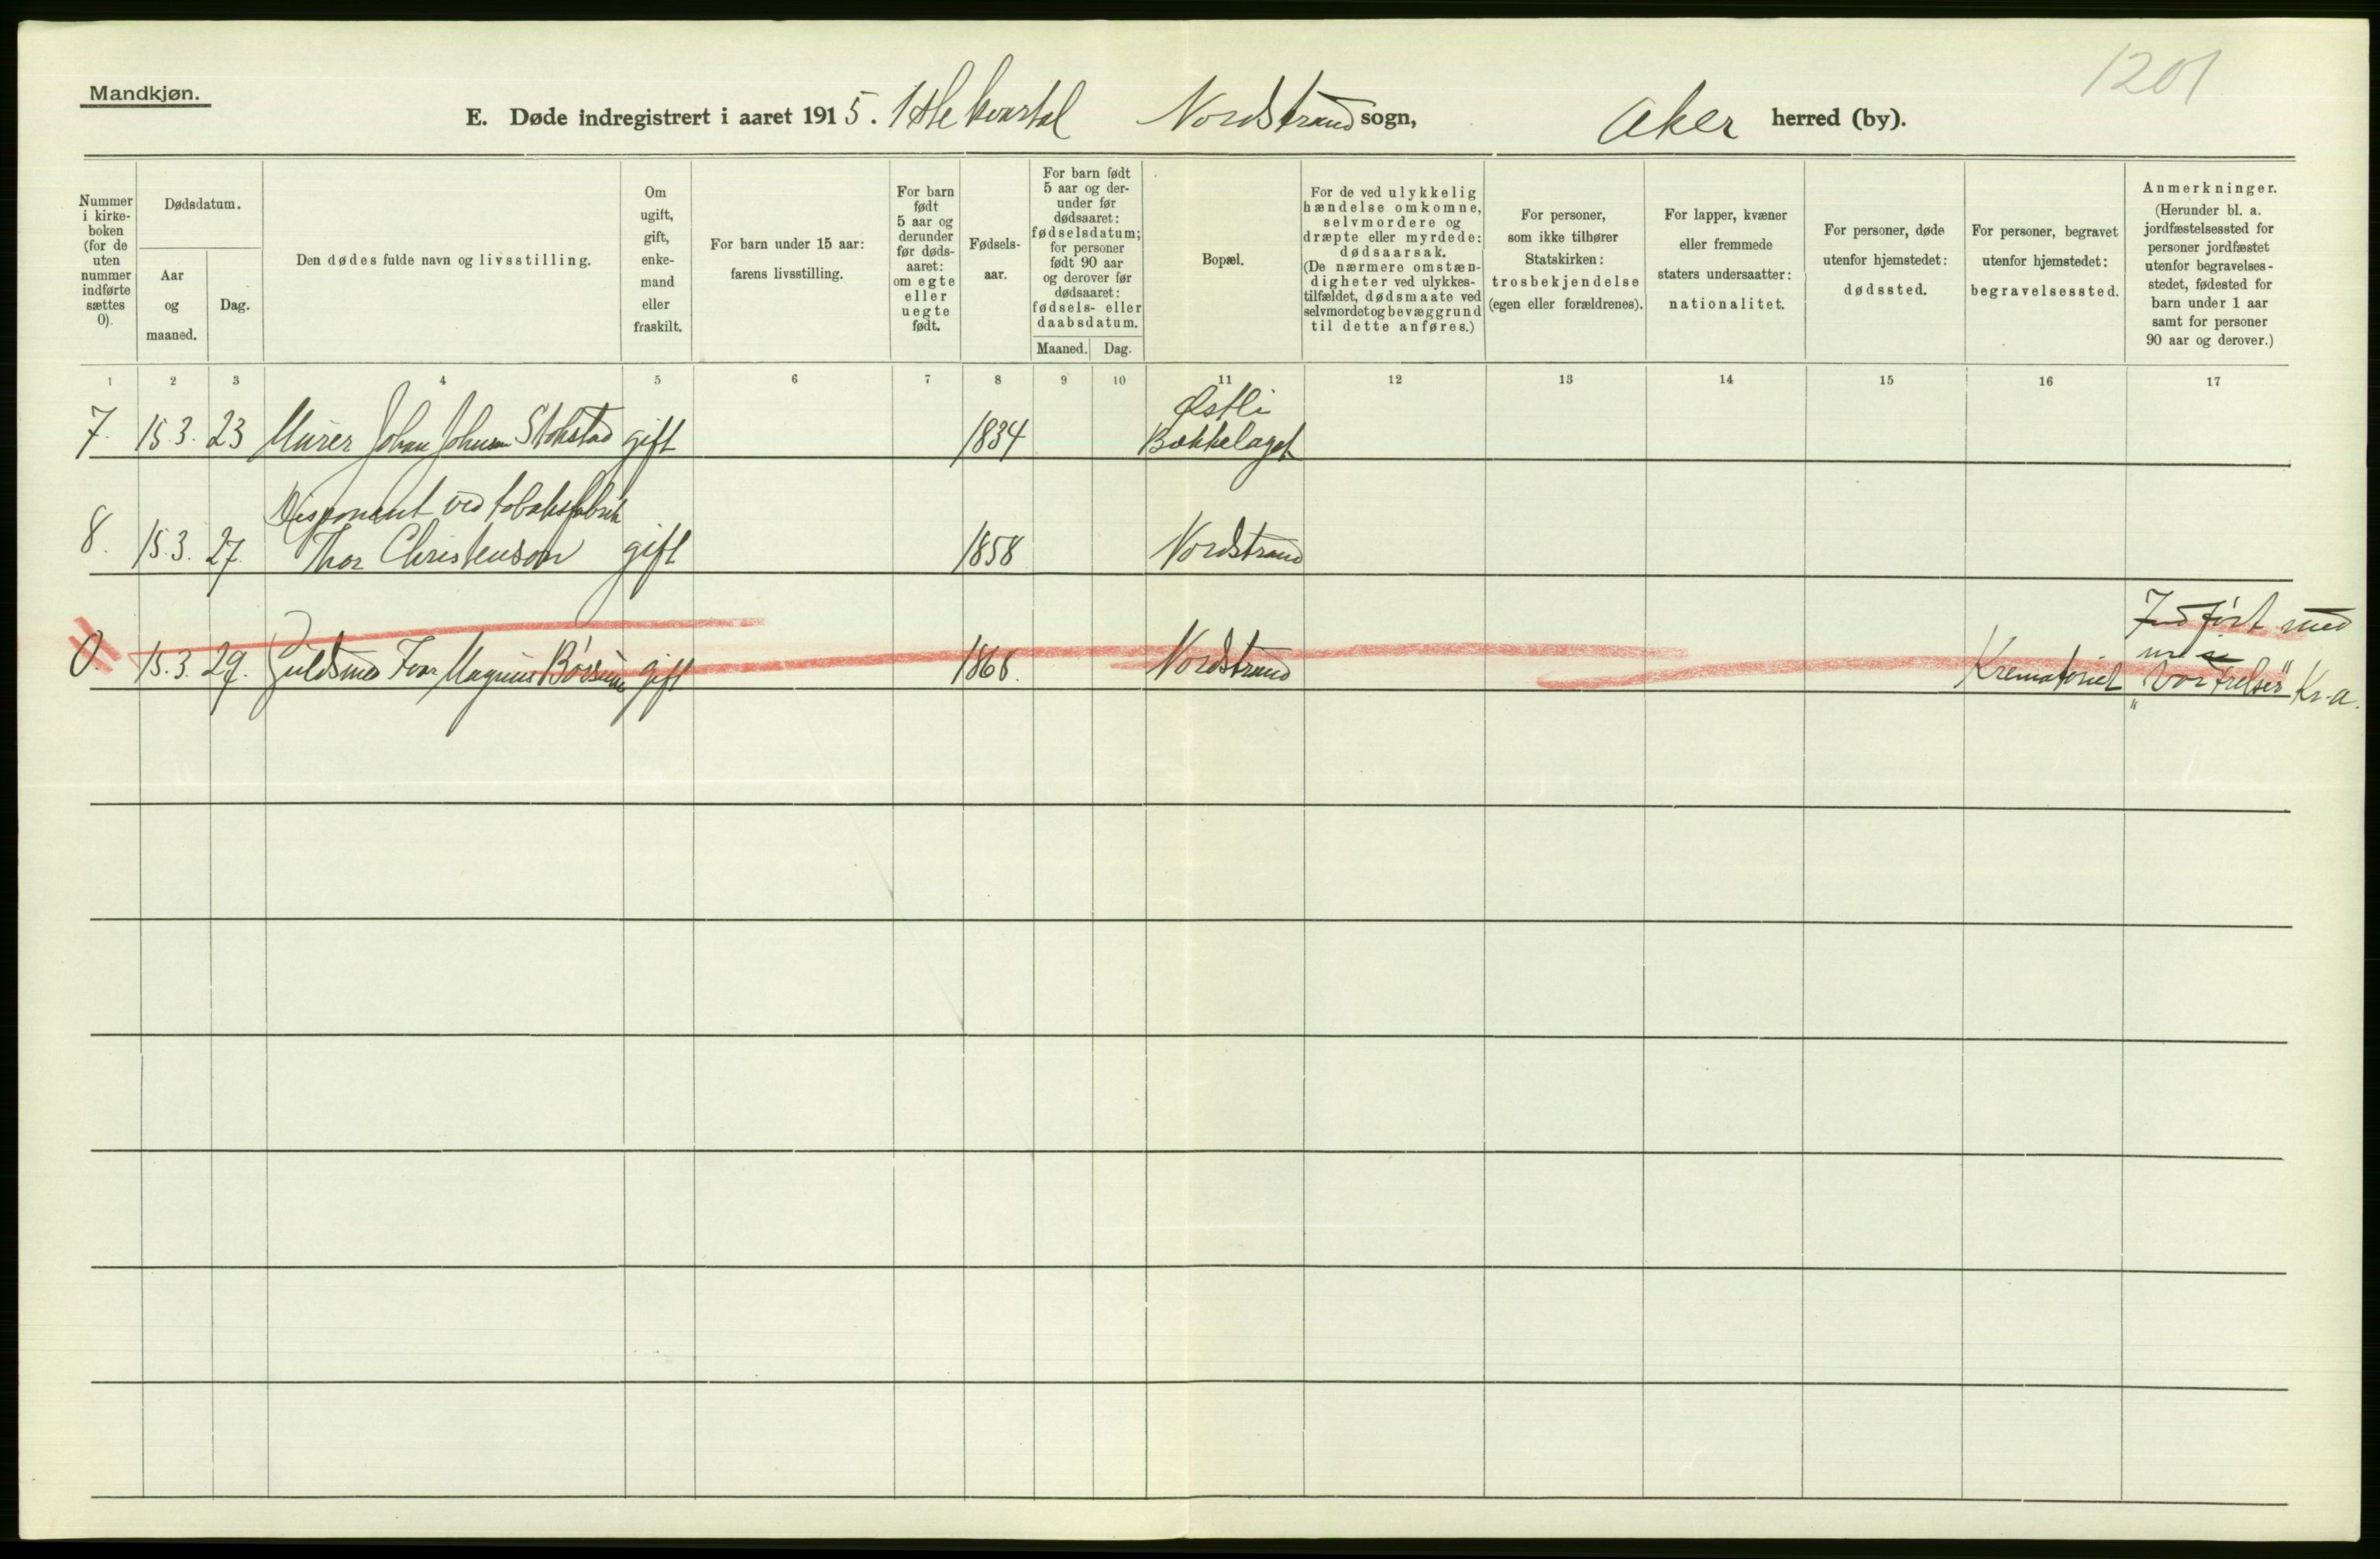 1201
Mandkjøn.
E. Døde indregistrert i aaret 1915. 1ste kvartal Nordstrand sogn, Aker herred (by).
Nummer i kirke- boken (for de uten nummer indførte sættes 0).
Dødsdatum.
Aar og maaned.
Dag.
Den dødes fulde navn og livsstilling.
Om ugift, gift, enke- mand eller fraskilt.
For barn under 15 aar: farens livsstilling.
For barn født 5 aar og derunder før døds- aaret: om egte eller uegte født.
Fødsels- aar.
For barn født 5 aar og der- under før dødsaaret: fødselsdatum; for personer født 90 aar og derover før dødsaaret: fødsels- eller daabsdatum.
Maaned.
Dag.
Bopæl.
For de ved ulykkelig hændelse omkomne, selvmordere og dræpte eller myrdede: dødsaarsak. (De nærmere omstæn- digheter ved ulykkes- tilfældet, dødsmaate ved selvmordet og bevæggrund til dette anføres.)
For personer, som ikke tilhører Statskirken: trosbekjendelse (egen eller forældrenes).
For lapper, kvæner eller fremmede staters undersaatter: nationalitet.
For personer, døde utenfor hjemstedet: dødssted.
For personer, begravet utenfor hjemstedet: begravelsessted.
Anmerkninger. (Herunder bl. a. jordfæstelsessted for personer jordfæstet utenfor begravelses- stedet, fødested for barn under 1 aar samt for personer 90 aar og derover.)
1 2 3 4 5 6 7 8 9 10 11 12 13 14 15 16 17
Østli
7. 15.3. 23 Murer Johan Johnsen Stokstad gift 1834 Bækkelaget
Disponent ved tobaksfabrik
8. 15.3. 27. Thor Christenson gift 1858 Nordstrand
Indført med
0. 15.3. 29. Guldsmed Ivar Magnus gift 1866. Nordstrand Krematoriet "Vor Frelser" Kr.a.